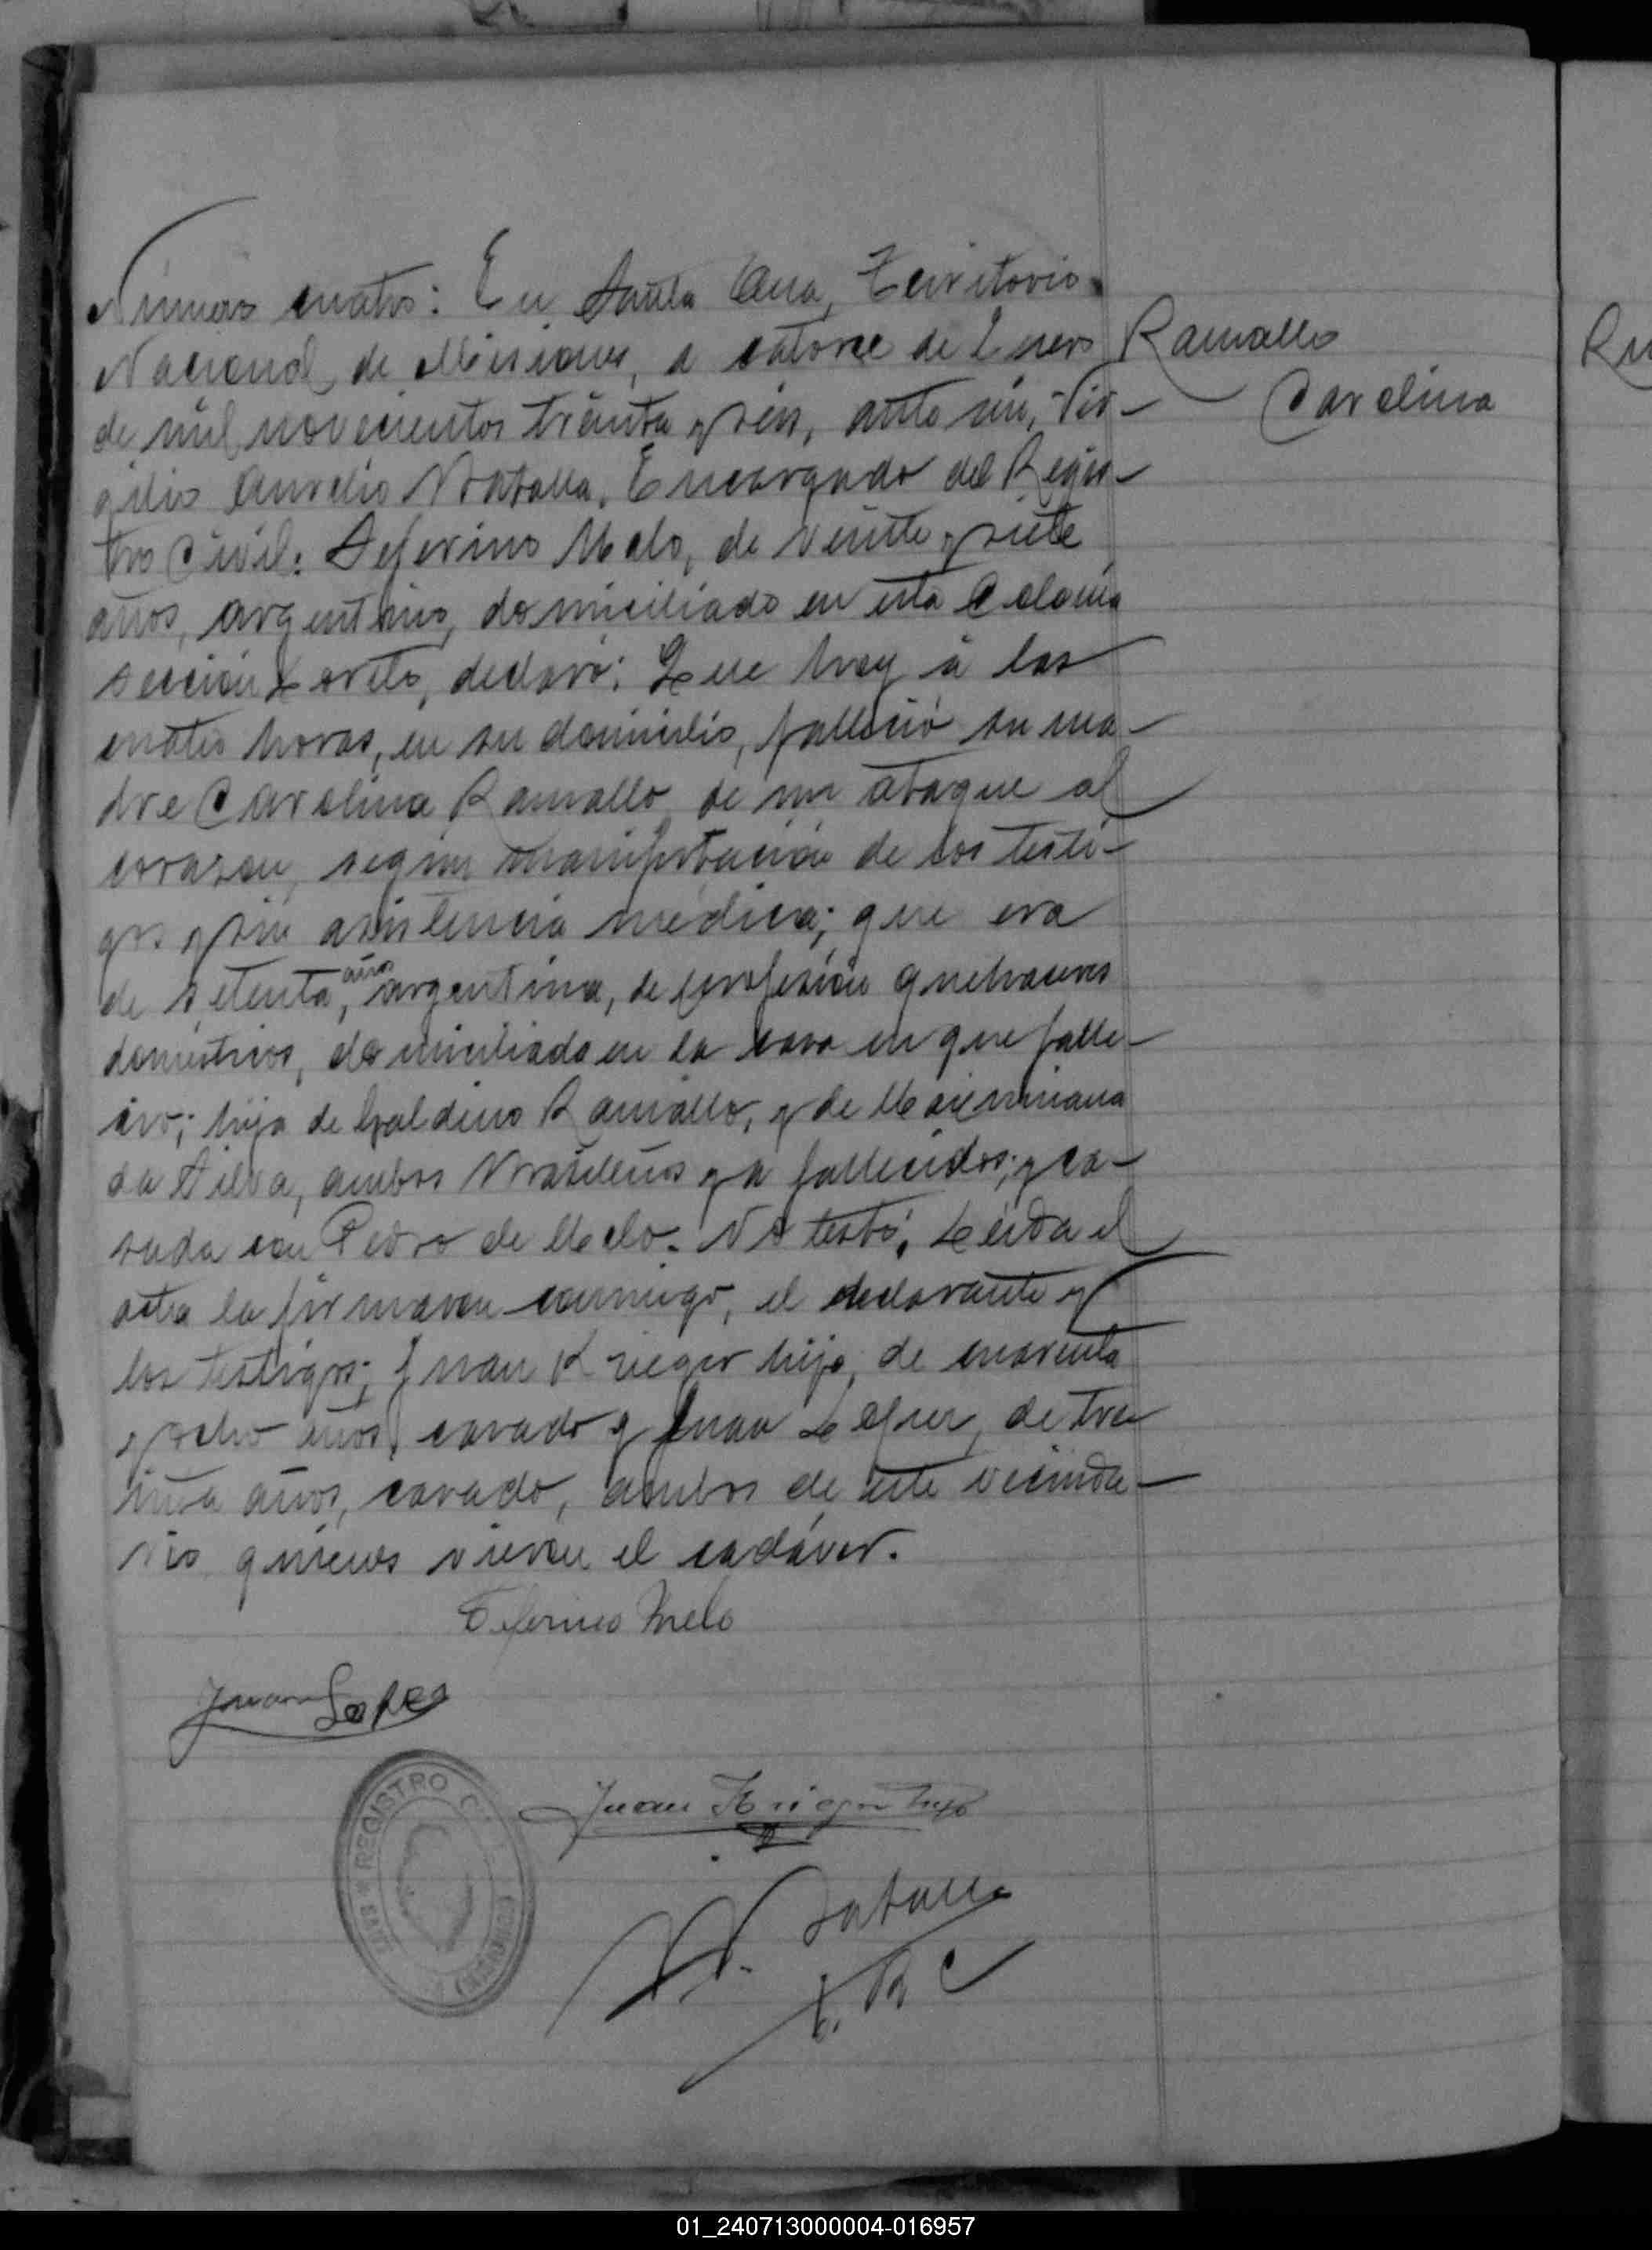 Número cuatro: En Santa Ana, Territorio
Nacional de Misiones, a catorce de Enero
de mil novecientos treinta y seis, ante mi, Vir-
gilio Aurelio Batalla, Encargado del Regis-
tro Civil: Seferino Melo, de veinte y siete
años, argentino, domiciliado en esta Colonia
sección Loreto, declaró: Que hoy á las
cuatro horas, en su domicilio, falleció su ma-
dre Carolina Ramallo de un ataque al
corazon, según manifestación de los testi-
gos y sin asistencia médica; que era
de setenta, años argentina, de profesión quehaceres
domésticos, domiciliada en la casa en que falle-
ció; hija de Galdino Ramallo, y de Maximiana
da Silva, ambos Brasileños ya fallecidos; y ca-
sada con Pedro de Melo. No testó. Leida el
acta la firmaron conmigo, el declarante y
los testigos; Juan Krieger hijo, de cuarenta
y ocho años, casado y Juan, de tre
inta años, casado, ambos de este vecinda-
rio quienes vieron el cadáver.
Ramallo
Carolina
Seferino Melo
Juan
Juan Krieger hijo
REGISTRO
V. A. Batalla
E. R C
Ra
01_240713000004-016957